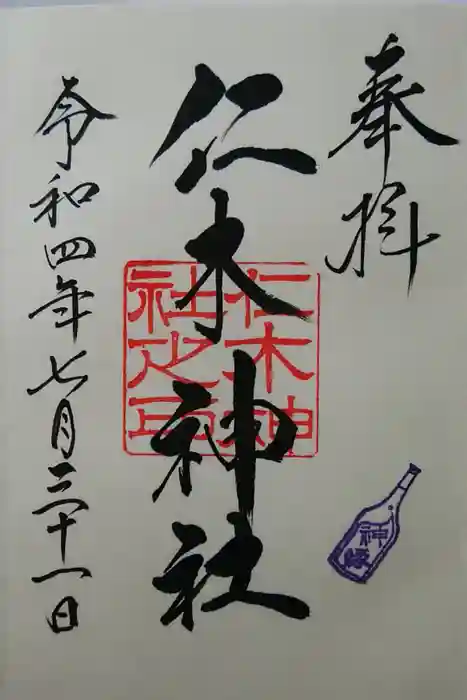 奉拝
仁木神社
仁木神
社之印
令和四年七月三十一日
神